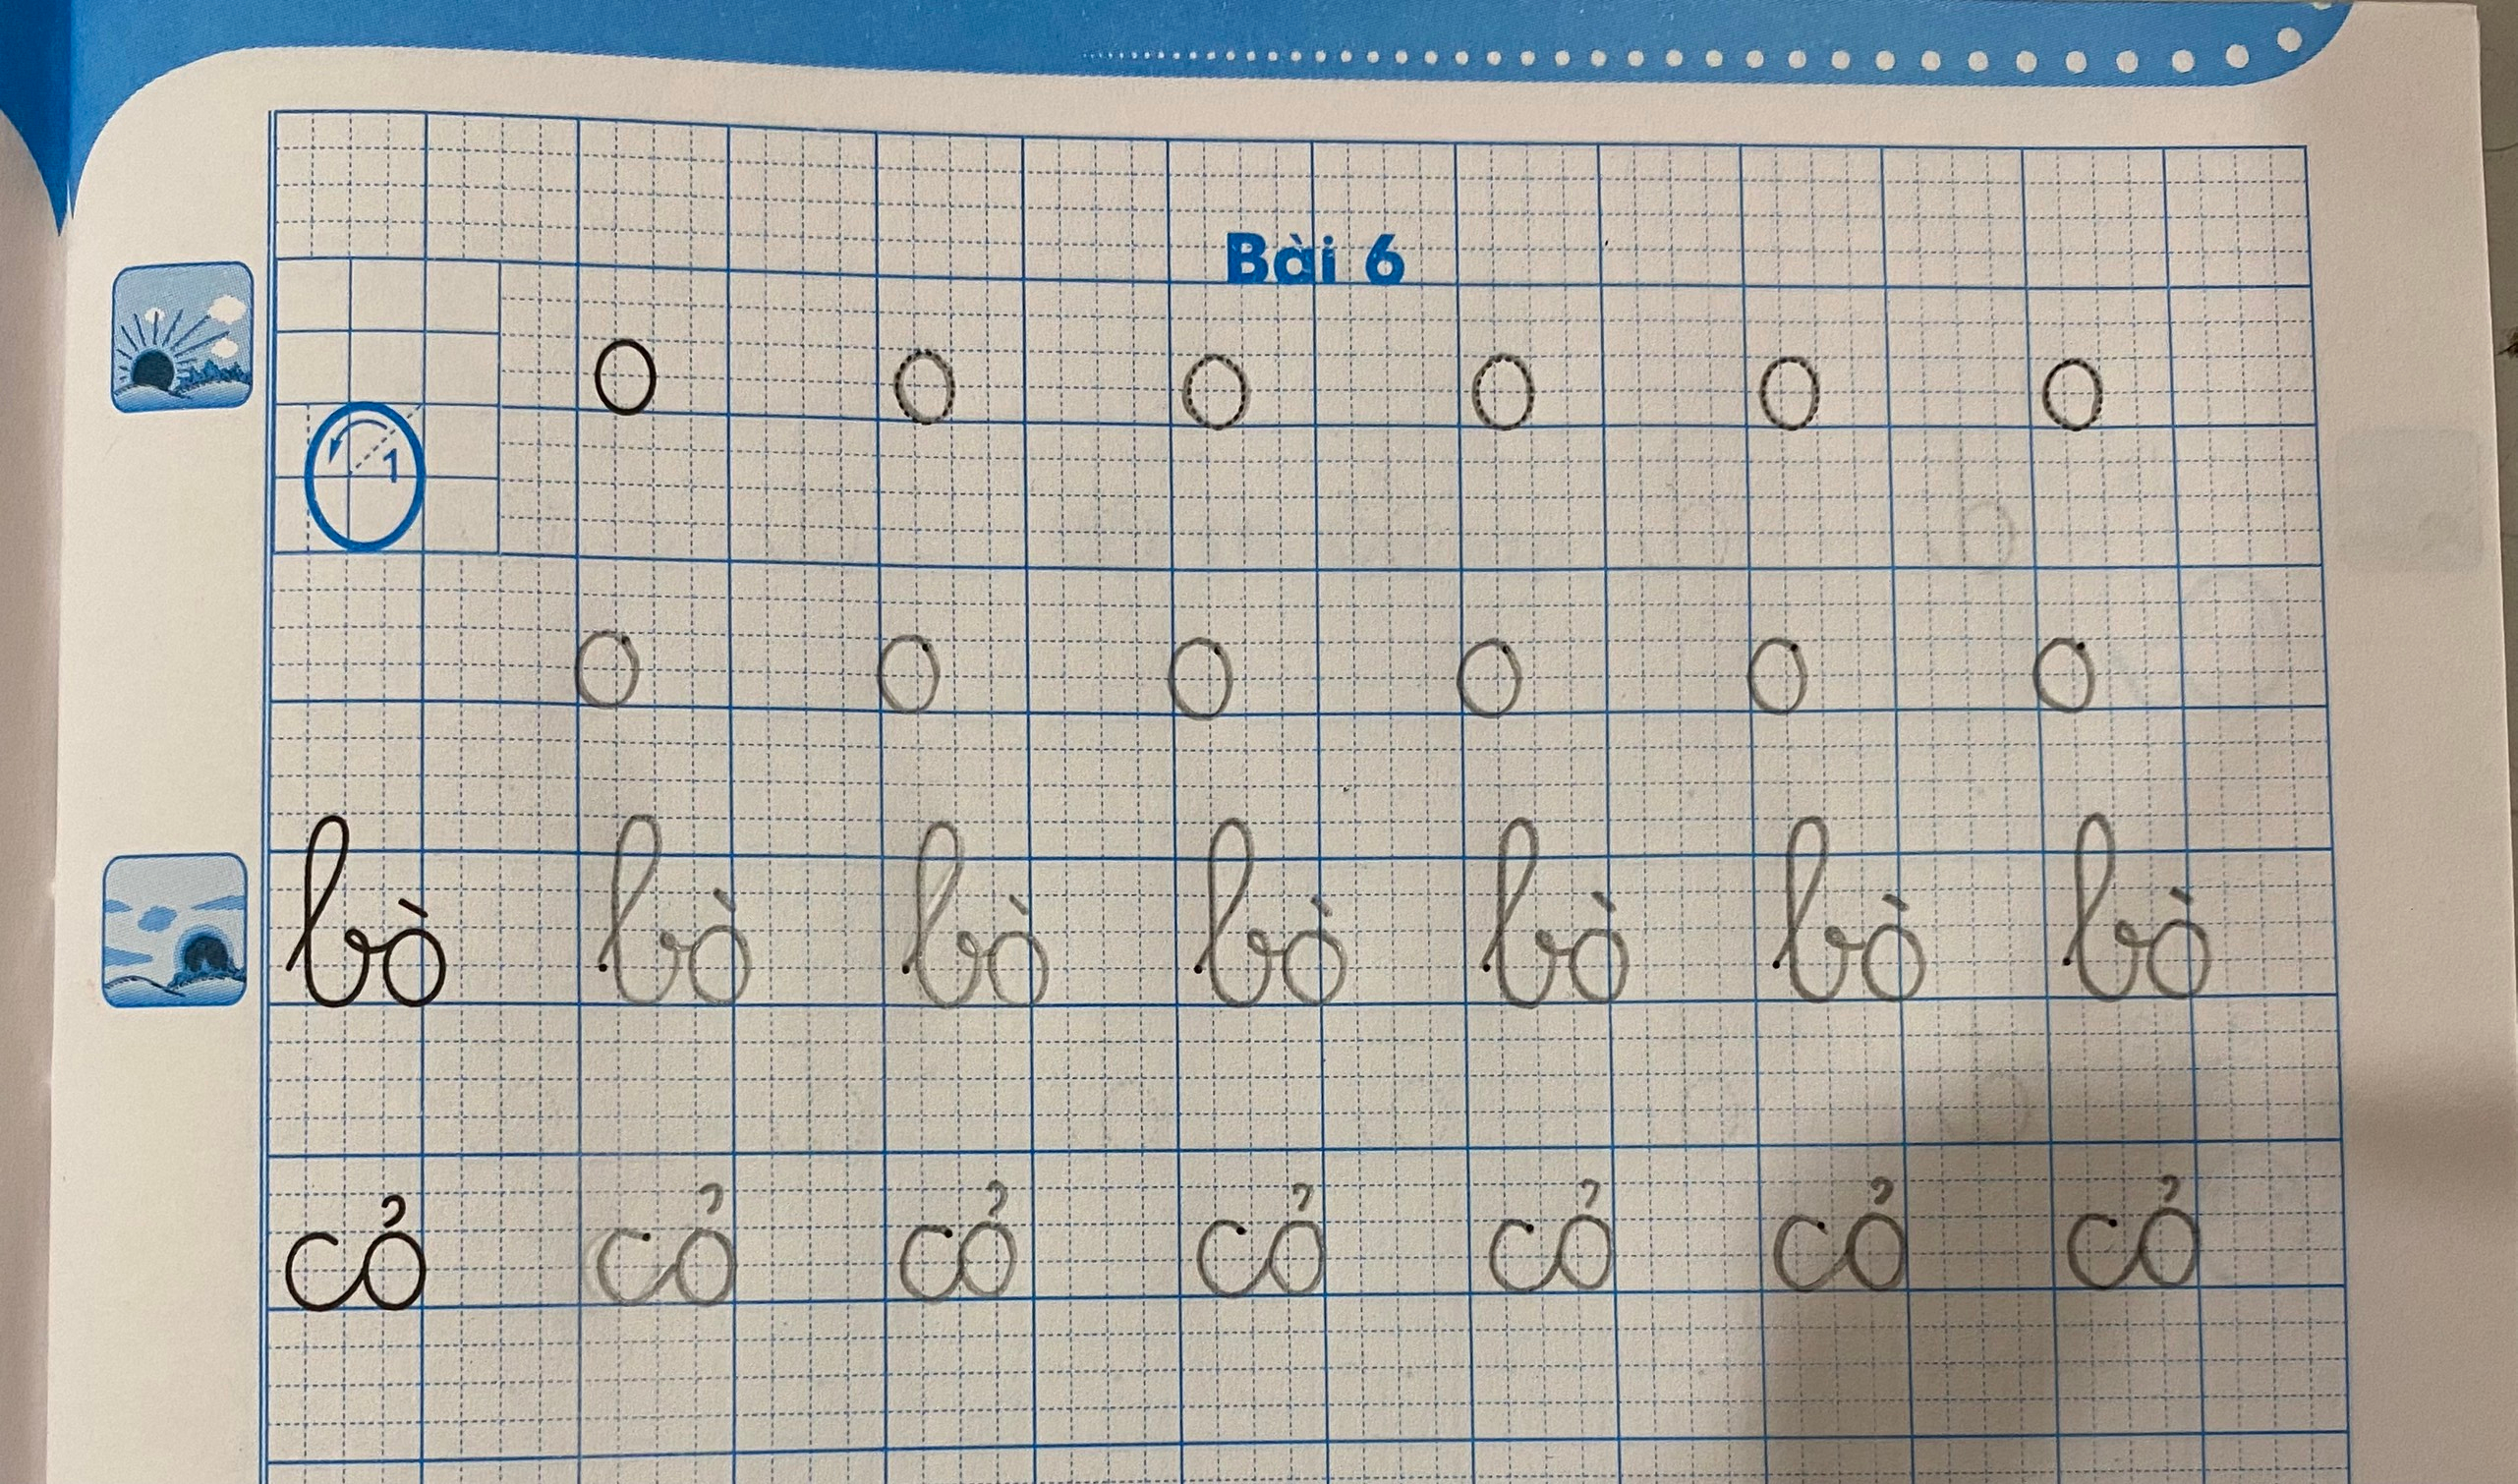 Bài 6
1 o o o o o o
o o o o o o
bò bò bò bò bò bò bò
cỏ cỏ cỏ cỏ cỏ cỏ cỏ